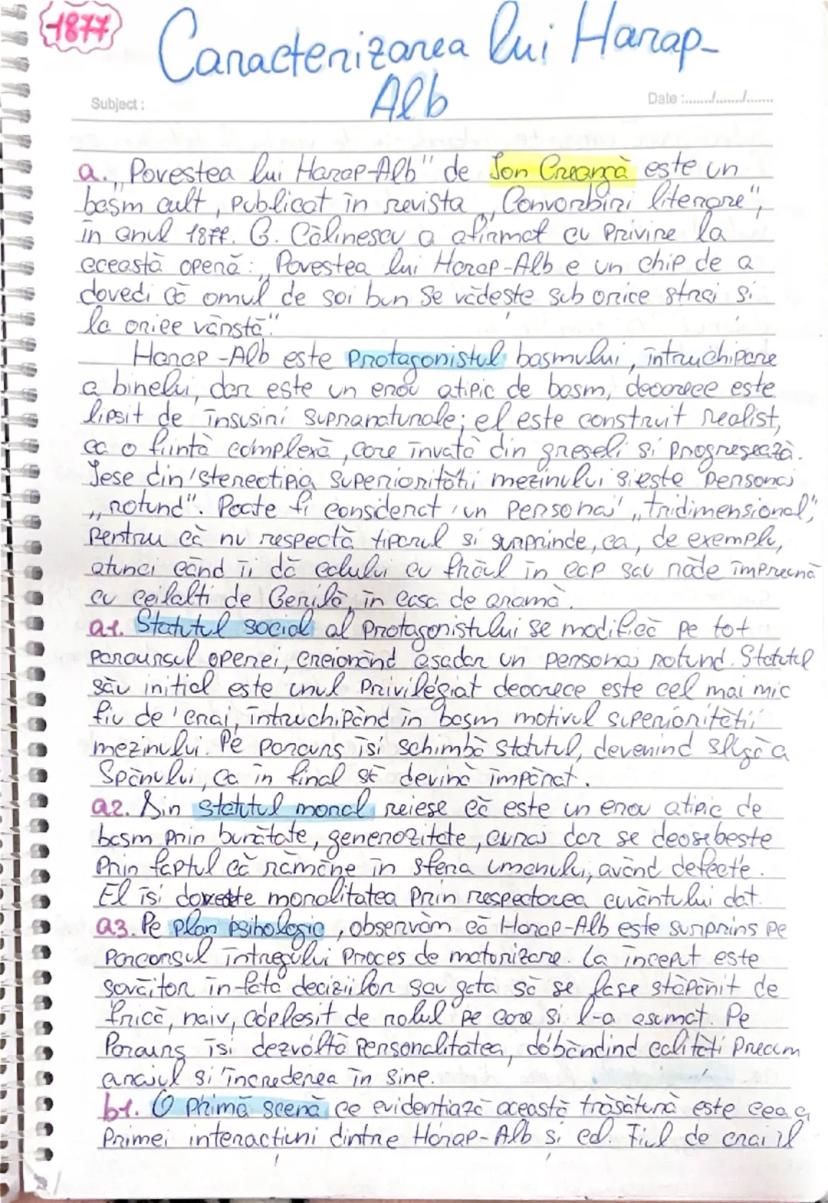 1877
Caracterizarea lui Harap-
Alb
Subject:
Date:....../....../......
a. "Povestea lui Harap-Alb" de Ion Creangă este un
basm cult, publicat în revista „Convorbiri literare",
în anul 1877. G. Călinescu a afirmat cu privire la
această operă: „Povestea lui Harap-Alb e un chip de a
dovedi că omul de soi bun se vădește sub orice strai și
la orice vârstă."
Harap-Alb este protagonistul basmului, întruchipare
a binelui, dar este un erou atipic de basm, deoarece este
lipsit de însușiri supranaturale; el este construit realist,
ca o ființă complexă, care învață din greșeli și progresează.
Iese din stereotipia superiorității mezinului și este personaj
„rotund". Poate fi considerat un personaj „tridimensional",
pentru că nu respectă tiparul și surprinde, ca, de exemplu,
atunci când îi dă calului cu frâul în cap sau râde împreună
cu ceilalți de Gerilă, în casa de aramă.
a1. Statutul social al protagonistului se modifică pe tot
parcursul operei, creionând așadar un personaj rotund. Statutul
său inițial este unul privilegiat deoarece este cel mai mic
fiu de crai, întruchipând în basm motivul superiorității
mezinului. Pe parcurs își schimbă statutul, devenind slugă a
Spânului, ca în final să devină împărat.
a2. Din statutul moral reiese că este un erou atipic de
basm prin bunătate, generozitate, curaj dar se deosebește
prin faptul că rămâne în sfera umanului, având defecte.
El își dovește moralitatea prin respectarea cuvântului dat.
a3. Pe plan psihologic, observăm că Harap-Alb este surprins pe
parcursul întregului proces de maturizare. La început este
șovăitor în fața deciziilor sau gata să se lase stăpânit de
frică, naiv, copleșit de rolul pe care și l-a asumat. Pe
parcurs își dezvoltă personalitatea, dobândind calități precum
curajul și încrederea în sine.
b1. O primă scenă ce evidențiază această trăsătură este cea a
primei interacțiuni dintre Harap-Alb și cal. Fiul de crai îl